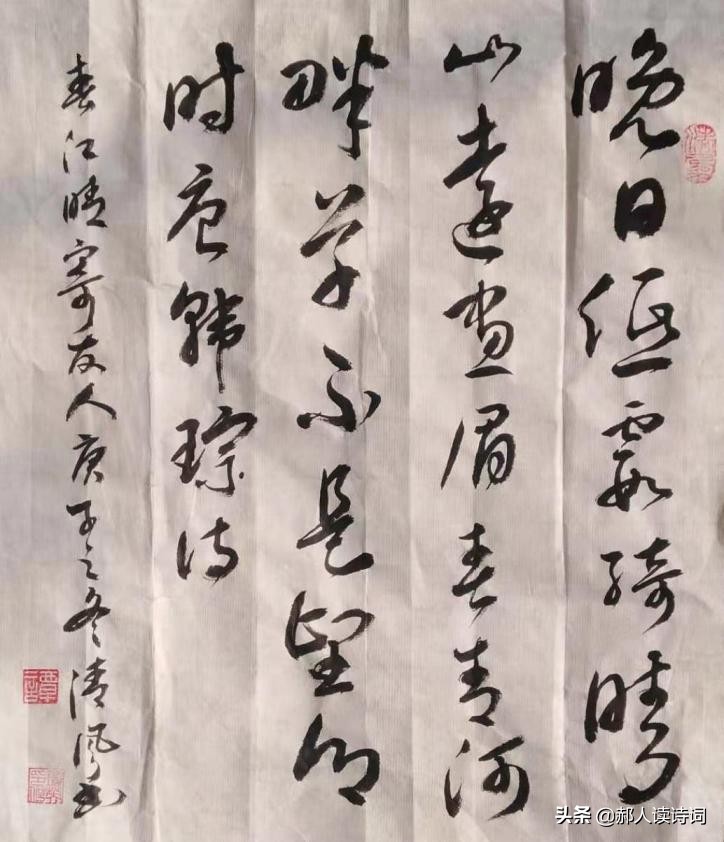 晚日低霞绮晴
山遠画眉春青河
畔草不是望乡
时唐韩琮诗
春江晴寄友人庚子之冬清风书
头条 @郝人读诗词